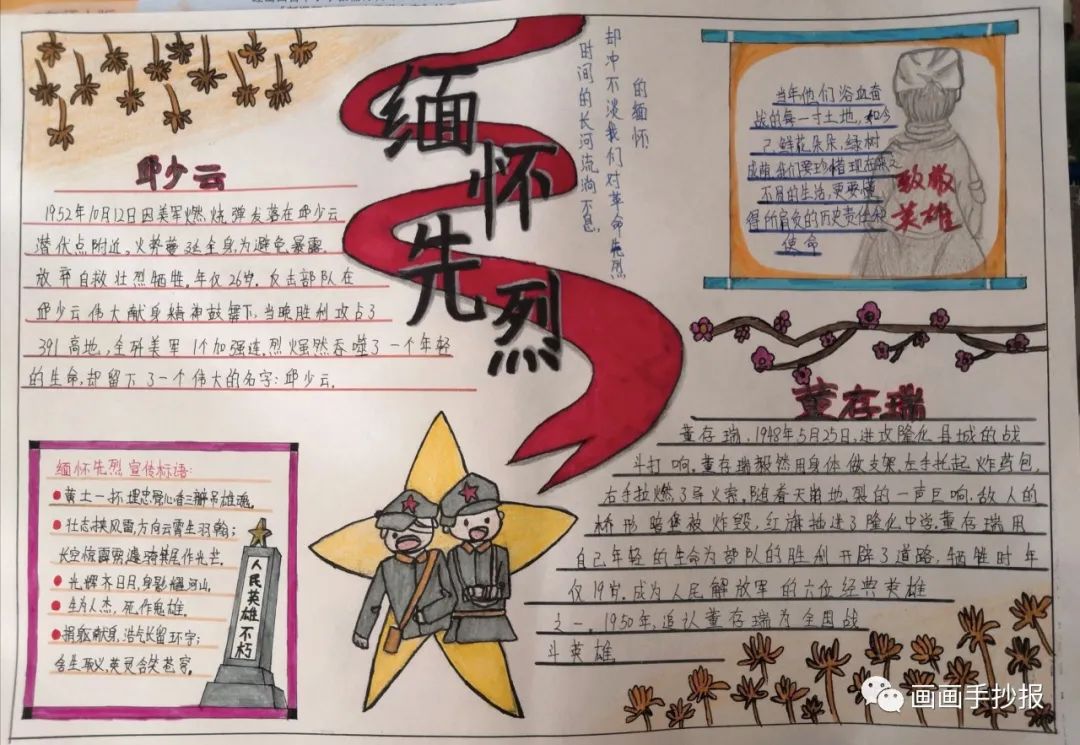 缅怀先烈
时间的长河流淌不息，
却冲不淡我们对革命先烈
的缅怀
邱少云
1952年10月12日因美军燃烧弹发落在邱少云
潜伏点附近，火势蔓延全身，为避免暴露，
放弃自救壮烈牺牲，年仅26岁。反击部队在
邱少云伟大献身精神鼓舞下，当晚胜利攻占了
391高地，全歼美军1个加强连，烈火虽然吞噬了一个年轻
的生命，却留下了一个伟大的名字：邱少云。
缅怀先烈宣传标语：
黄土一抔埋忠骨，心香三瓣吊雄魂。
壮志挟风雷，方向云霄生羽翰；
长空惊露雳，遽骑箕尾作光芒。
光辉齐日月，身影耀河山。
生为人杰，死作鬼雄。
捐躯献身，浩气长留环宇；
舍生取义，英灵含笑苍穹。
人民英雄不朽
当年他们浴血奋
战的每一寸土地，如今
已鲜花朵朵，绿树
成荫，我们要珍惜现在来之
不易的生活，更要懂
得所肩负的历史责任和
使命
致敬
英雄
董存瑞
董存瑞，1948年5月25日，进攻隆化县城的战
斗打响。董存瑞毅然用身体做支架，左手托起炸药包，
右手拉燃了导火索，随着天崩地裂的一声巨响，敌人的
桥形暗堡被炸毁，红旗插进了隆化中学。董存瑞用
自己年轻的生命为部队的胜利开辟了道路，牺牲时年
仅19岁。成为人民解放军的六位经典英雄
之一。1950年，追认董存瑞为全国战
斗英雄
画画手抄报